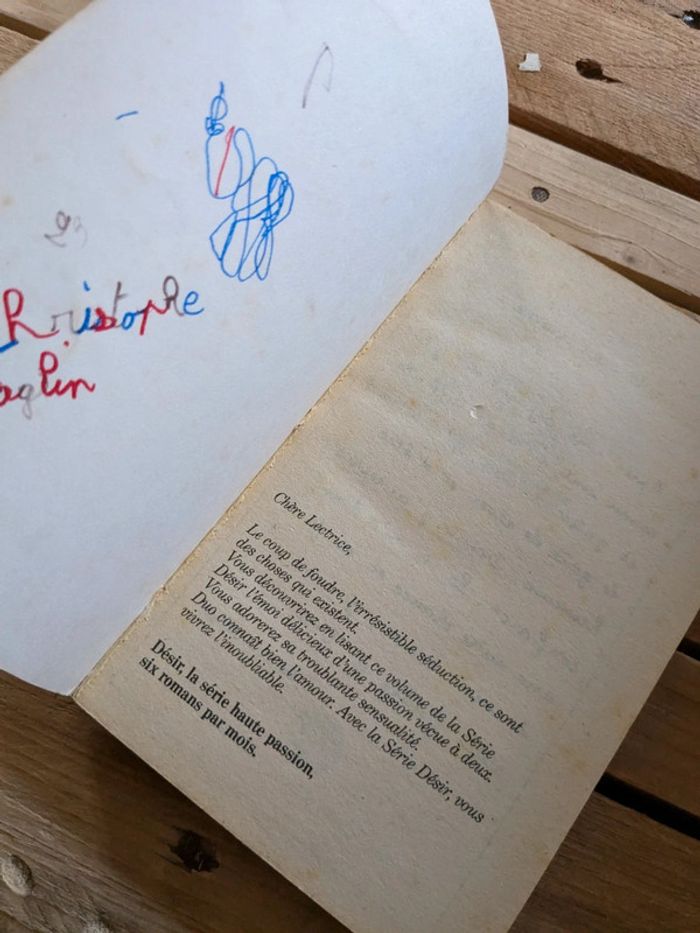 hristophe
aglin
Chère Lectrice,
Le coup de foudre, l'irrésistible séduction, ce sont
des choses qui existent.
Vous découvrirez en lisant ce volume de la Série
Désir l'émoi délicieux d'une passion vécue à deux.
Vous adorerez sa troublante sensualité.
Duo connaît bien l'amour. Avec la Série Désir, vous
vivrez l'inoubliable.
Désir, la série haute passion,
six romans par mois.